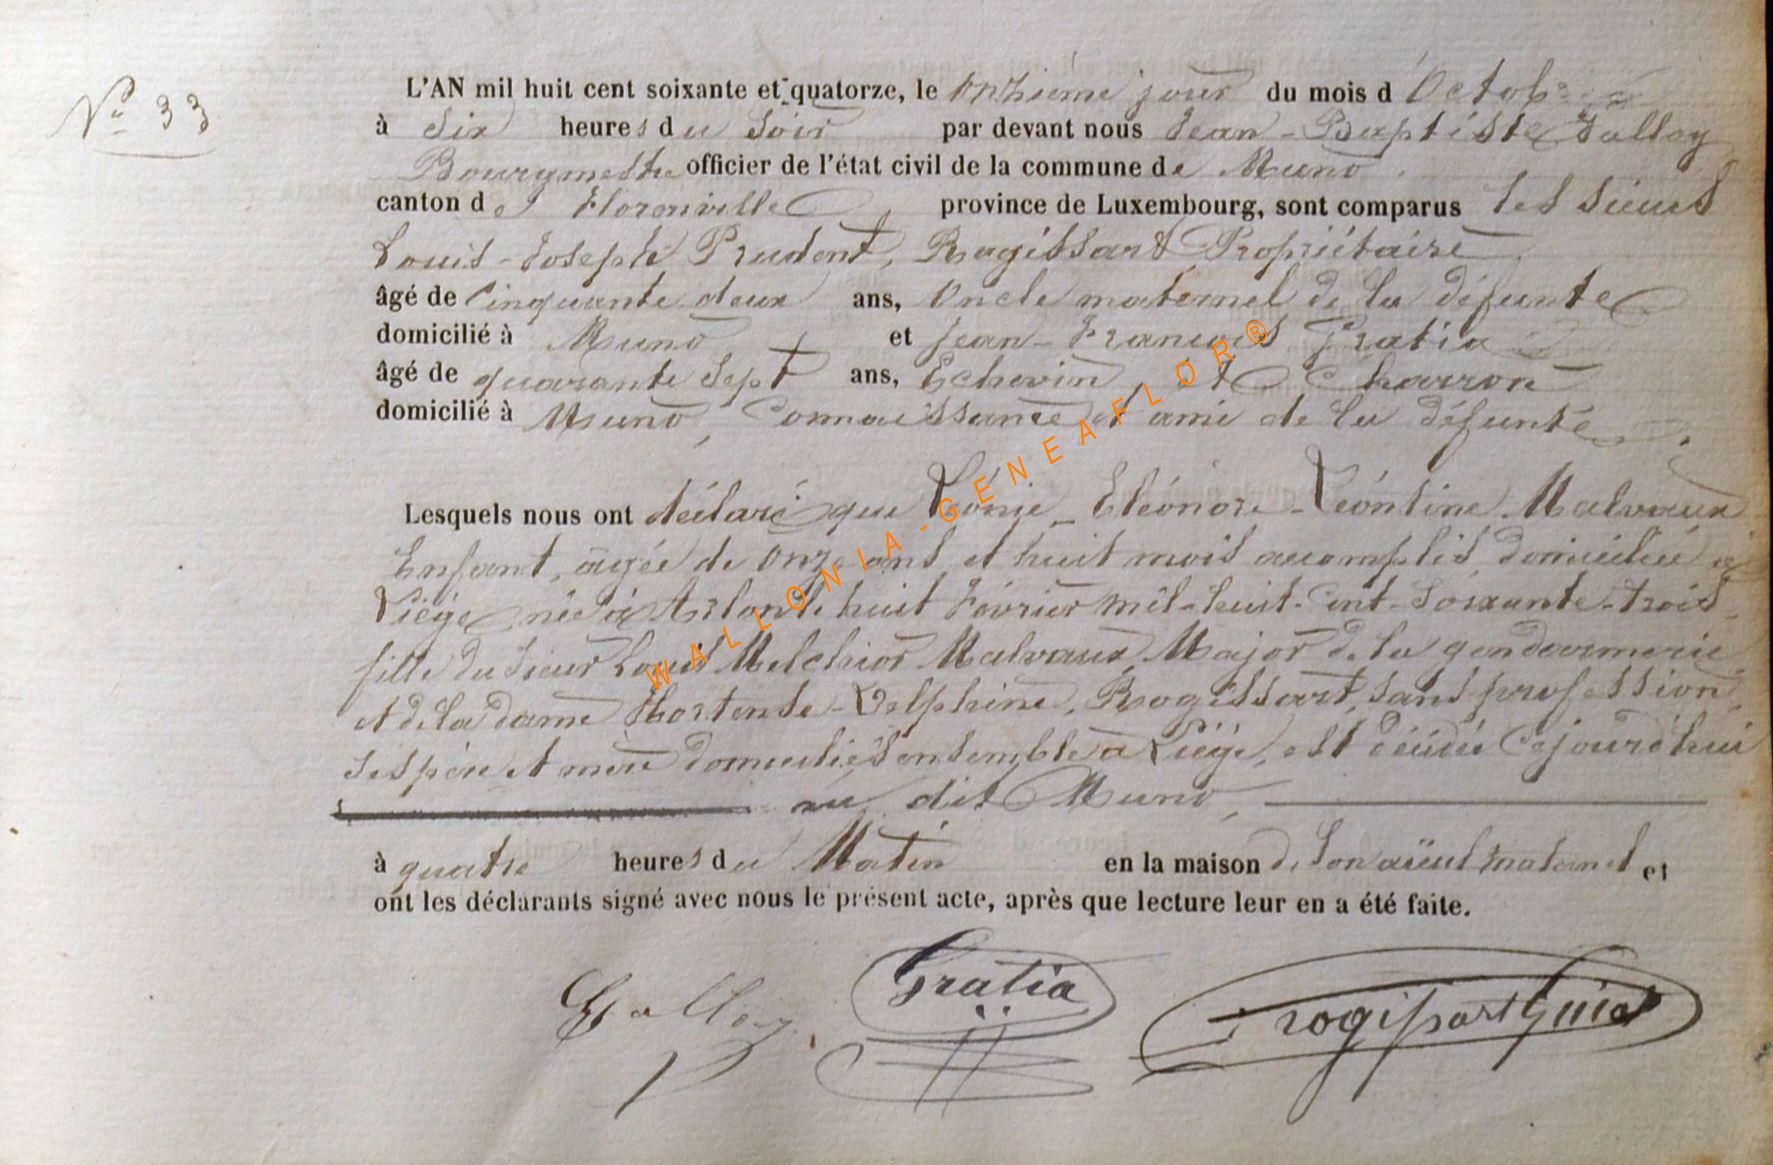 N° 33
L'AN mil huit cent soixante et quatorze, le onzième jour du mois d'Octobre
à Six heures du Soir par devant nous Jean-Baptiste Falloy
Bourgmestre officier de l'état civil de la commune de Muno
canton de Florenville province de Luxembourg, sont comparus les sieurs
Louis-Joseph Prudent, Rogissart Propriétaire
âgé de Cinquante deux ans, Oncle maternel de la défunte
domicilié à Muno et Jean-François Gratia
âgé de quarante Sept ans, Echevin, et Charron
domicilié à Muno, Connaissance et ami de la défunte.
Lesquels nous ont déclaré que Léonie-Eléonore-Léontine Malvaux
Enfant, âgée de onze ans et huit mois accomplis domiciliée à
Liége, née à Arlon le huit Février mil-huit-Cent-Soixante-trois
fille du Sieur Louis Melchior Malvaux Major de la gendarmerie
et de la dame Hortense-Delphine, Rogissart, Sans profession,
Ses père et mère domiciliés ensemble à Liége, est décédée Cejourd'hui
au dit Muno,
à quatre heures du Matin en la maison de Son aïeul maternel et
ont les déclarants signé avec nous le présent acte, après que lecture leur en a été faite.
Falloy Gratia Rogissart
WALLONIA-GENEAFLOR®